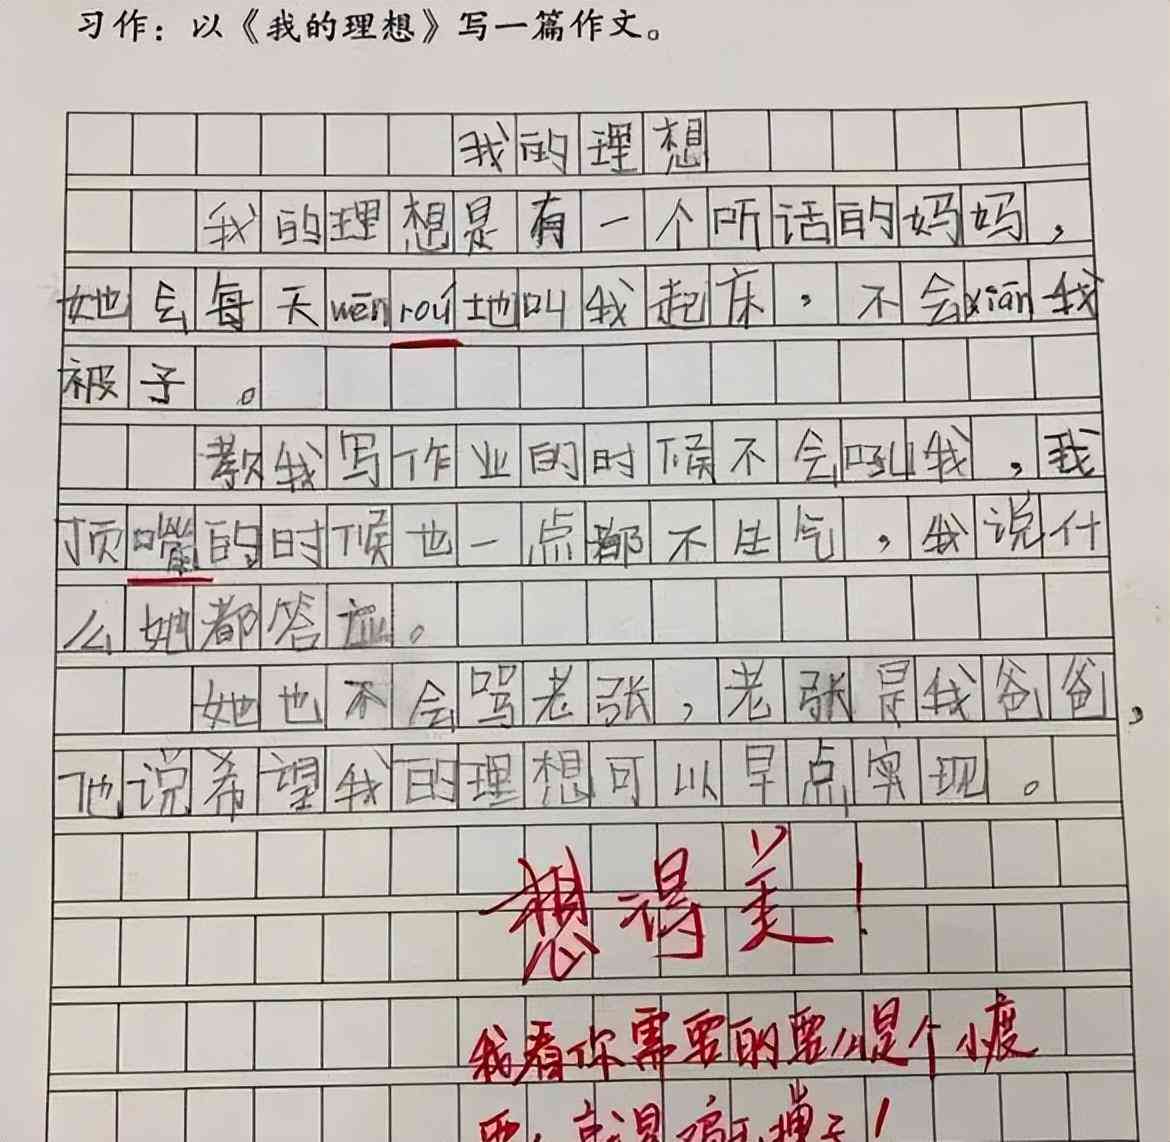 习作：以《我的理想》写一篇作文。
我的理想
我的理想是有一个听话的妈妈，
她会每天wēn roú地叫我起床，不会xiān我
被子。
教我写作业的时候不会吼我，我
顶嘴的时候也一点都不生气，我说什
么她都答应。
她也不会骂老张，老张是我爸爸，
他说希望我的理想可以早点实现。
想得美！
我看你需要的要么是个小度